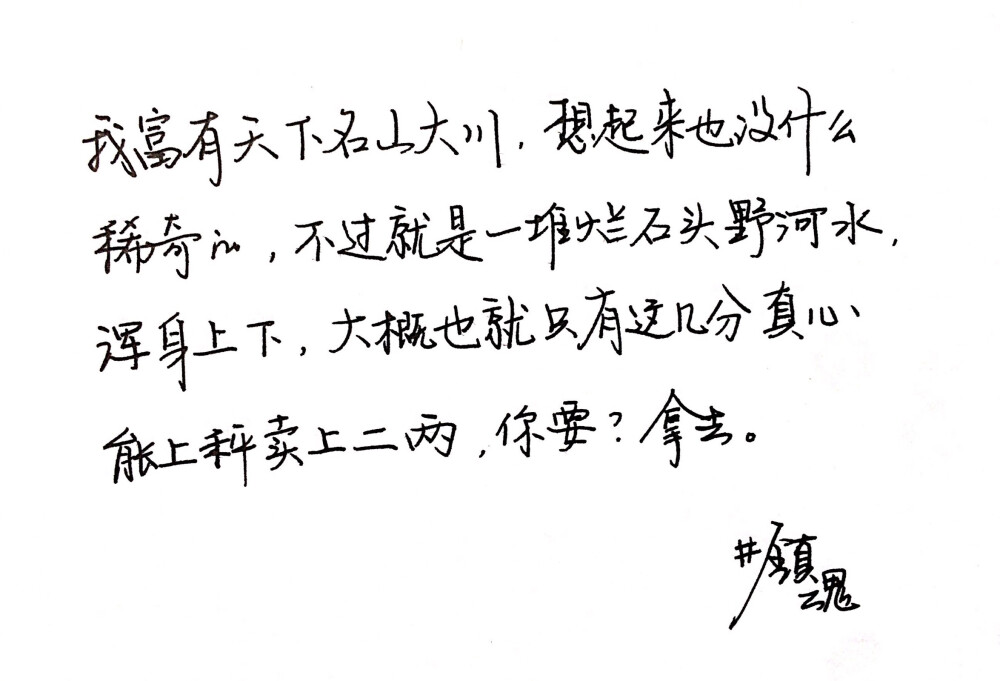 我富有天下名山大川，想起来也没什么
稀奇的，不过就是一堆烂石头野河水，
浑身上下，大概也就只有这几分真心、
能上秤卖上二两，你要？拿去。
#镇魂